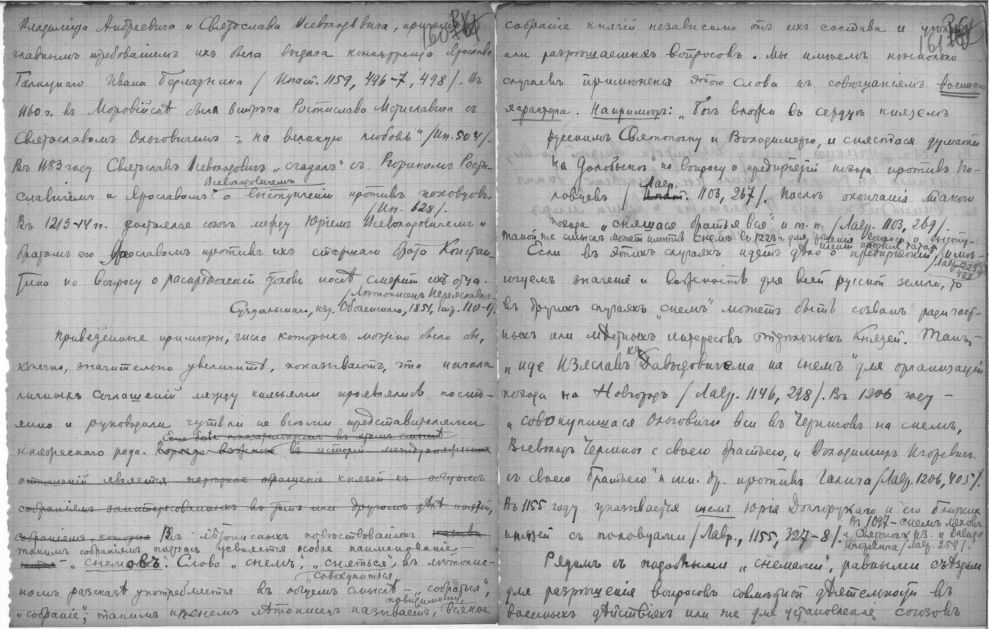 Владиміра Андреевича и Святослава Всеволодовича, причемъ
главнымъ требованіемъ ихъ была выдача конкурента Ярослава
Галицкаго Ивана Берладника /Ипат. 1159, 496-7, 498/. Въ
1160 г. въ Моровійскѣ была встрѣча Ростислава Мстиславича съ
Святославомъ Ольговичемъ – "на великую любовь" /Ип. 504/.
Въ 1183 году Святославъ Всеволодовичъ "сгадалъ" съ Рюрикомъ Рости-
славичемъ и Ярославомъ Всеволодовичемъ о выступленіи противъ половцевъ
/Ип. 628/.
Въ 1213-14 гг. состоялся союзъ между Юріемъ Всеволодовичемъ и
братомъ его Ярославомъ противъ ихъ старшаго брата Констан-
тина по вопросу о распредѣленіи столовъ послѣ смерти ихъ отца.
Лѣтописецъ Переяславля
Суздальскаго, изд. Оболенскаго, 1851, стр. 110-1/.
Приведенные примѣры, число которыхъ можно было бы,
конечно, значительно увеличить, показываютъ, что начала
личныхъ соглашеній между князьями проявлялись посто-
янно и руководили чуть ли не всѣми представителями
княжескаго рода.
отношеній является обращеніе князей къ общимъ
собраніямъ заинтересованныхъ въ томъ или другомъ дѣлѣ князей,
собраніямъ, которыя Въ лѣтописныхъ повѣствованіяхъ
такимъ собраніямъ усвояется особое наименованіе –
"снемовъ". Слово "снемъ", "сняться", въ лѣтопис-
номъ разсказѣ употребляется въ общемъ смыслѣ – "собраться", совокупиться
"собраніе"; такимъ именемъ лѣтописецъ называетъ, повидимому, всякое
160
собраніе князей независимо отъ ихъ состава и
161
или разрѣшаемыхъ вопросовъ. Мы имѣемъ нѣсколько
случаевъ примѣненія этого слова къ совѣщаніямъ военнаго
характера. Напримѣръ: "Богъ вложи въ сердце княземъ
русскимъ Святополку и Володимеру, и снястася думати
на Долобьскѣ" по вопросу о предпріятіи похода противъ По-
ловцевъ /Лавр. 1103, 267/. Послѣ окончанія этого
похода "снемшеся братья вся" и т. п. /Лавр. 1103, 269/.
такой же смыслъ можетъ имѣть снемъ въ 1223 г. для рѣшенія вопроса о выступ-
леніи противъ татаръ /Лавр. 1223,
Если въ этихъ случаяхъ идетъ дѣло о предпріятіи, имѣ-
ющемъ значеніе и важность для всей русской земли, то
въ другихъ случаяхъ "снемъ" можетъ быть созванъ ради част-
ныхъ или мѣстныхъ интересовъ отдѣльныхъ князей. Такъ, –
"иде Изяславъ къ Давыдовичема на снемъ" для организаціи
похода на Новгородъ /Лавр. 1146, 298/. Въ 1206 году –
"совокупишася Ольговичи вси въ Черниговѣ на снемъ,
Всеволодъ Чермны с своею братьею, и Володимиръ Игоревичь
съ своею братьею" и мн. др. противъ Галича /Лавр. 1206, 405/.
Въ 1155 году указывается снемъ Юрія Долгорукаго и его ближнихъ
князей съ половцами /Лавр., 1155, 327-8/. Въ 1097 – снемъ ляховъ
и Святополка Из. и Давида
Игоревича /Лавр. 259/.
Рядомъ съ подобными "снемами", равными съѣздамъ
для разрѣшенія вопросовъ совмѣстной дѣятельности въ
военныхъ дѣйствіяхъ или же для установленія союзовъ